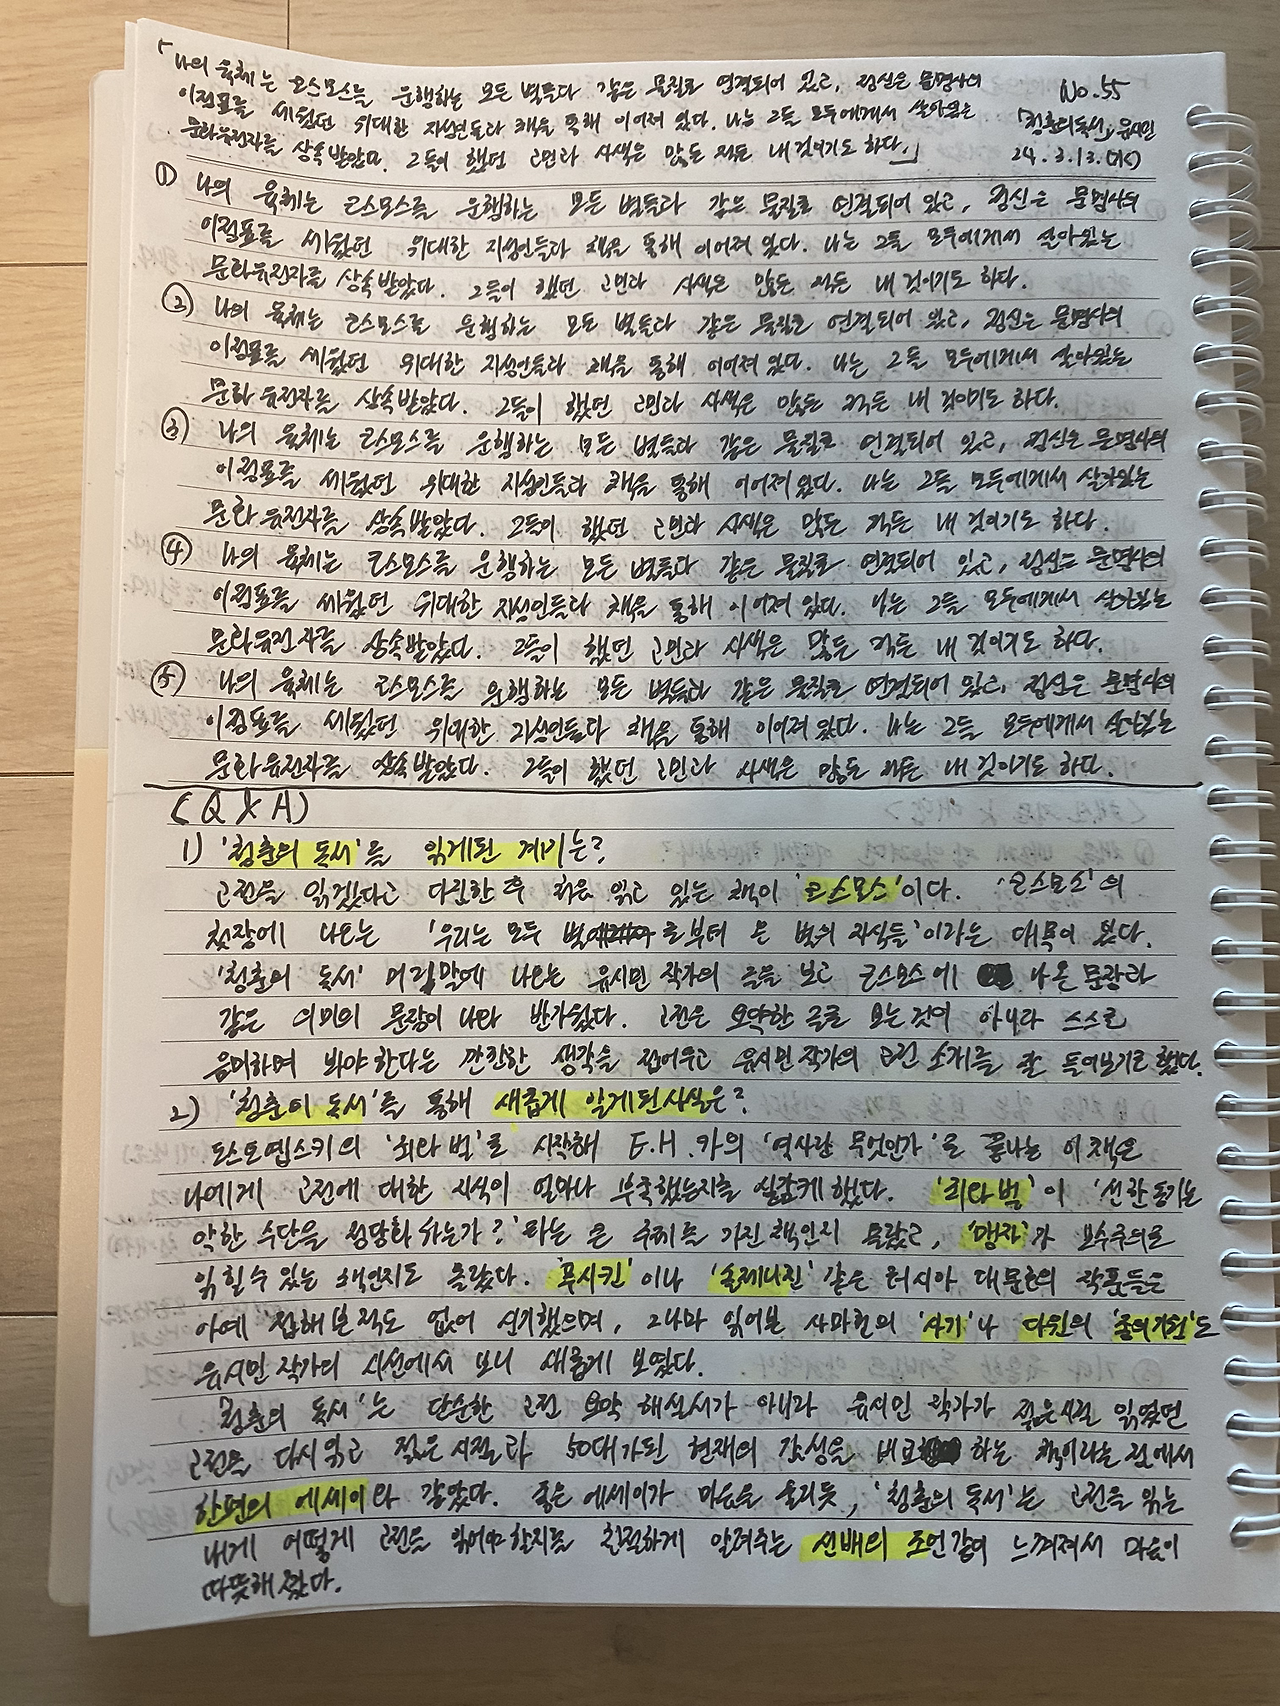 「나의 육체는 코스모스를 운행하는 모든 별들과 같은 물질로 연결되어 있고, 정신은 문명사의
이정표를 세웠던 위대한 지성인들과 책을 통해 이어져 있다. 나는 그들 모두에게서 살아있는
문화유전자를 상속받았다. 그들이 했던 고민과 사색은 많든 적든 내 것이기도 하다.」
No.55
「청춘의 독서」, 유시민
24. 3. 13. (수)
① 나의 육체는 코스모스를 운행하는 모든 별들과 같은 물질로 연결되어 있고, 정신은 문명사의
이정표를 세웠던 위대한 지성인들과 책을 통해 이어져 있다. 나는 그들 모두에게서 살아있는
문화유전자를 상속받았다. 그들이 했던 고민과 사색은 많든 적든 내 것이기도 하다.
② 나의 육체는 코스모스를 운행하는 모든 별들과 같은 물질로 연결되어 있고, 정신은 문명사의
이정표를 세웠던 위대한 지성인들과 책을 통해 이어져 있다. 나는 그들 모두에게서 살아있는
문화유전자를 상속받았다. 그들이 했던 고민과 사색은 많든 적든 내 것이기도 하다.
③ 나의 육체는 코스모스를 운행하는 모든 별들과 같은 물질로 연결되어 있고, 정신은 문명사의
이정표를 세웠던 위대한 지성인들과 책을 통해 이어져 있다. 나는 그들 모두에게서 살아있는
문화유전자를 상속받았다. 그들이 했던 고민과 사색은 많든 적든 내 것이기도 하다.
④ 나의 육체는 코스모스를 운행하는 모든 별들과 같은 물질로 연결되어 있고, 정신은 문명사의
이정표를 세웠던 위대한 지성인들과 책을 통해 이어져 있다. 나는 그들 모두에게서 살아있는
문화유전자를 상속받았다. 그들이 했던 고민과 사색은 많든 적든 내 것이기도 하다.
⑤ 나의 육체는 코스모스를 운행하는 모든 별들과 같은 물질로 연결되어 있고, 정신은 문명사의
이정표를 세웠던 위대한 지성인들과 책을 통해 이어져 있다. 나는 그들 모두에게서 살아있는
문화유전자를 상속받았다. 그들이 했던 고민과 사색은 많든 적든 내 것이기도 하다.
(Q & A)
1) '청춘의 독서'를 읽게된 계기는?
고전을 읽겠다고 다짐한 후 처음 읽고 있는 책이 '코스모스'이다. '코스모스'의
첫장에 나오는 '우리는 모두 별로부터 온 별의 자식들'이라는 대목이 있다.
'청춘의 독서' 머릿말에 나오는 유시민 작가의 글을 보고 코스모스에 나온 문장과
같은 의미의 문장이 나와 반가웠다. 고전은 요약한 글로 보는것이 아니라 스스로
음미하며 봐야한다는 깐깐한 생각을 접어두고 유시민 작가의 고전 소개를 잘 들어보기로 했다.
2) '청춘의 독서'를 통해 새롭게 알게된사실은?
도스토옙스키의 '죄와 벌'로 시작해 E.H.카의 '역사란 무엇인가'로 끝나는 이 책은
나에게 고전에 대한 지식이 얼마나 부족했는지를 실감케했다. '죄와 벌'이 '선한 동기는
악한 수단을 정당화 하는가?'라는 큰 주제를 가진 책인지 몰랐고, '맹자'가 보수주의로
읽힐수 있는 책인지도 몰랐다. '푸시킨'이나 '솔제니친' 같은 러시아 대문호의 작품들은
아예 접해본적도 없어 신기했으며, 그나마 읽어본 사마천의 '사기'나 다윈의 '종의기원'도
유시민 작가의 시선에서 보니 새롭게 보였다.
'청춘의 독서'는 단순한 고전 요약 해설서가 아니라 유시민 작가가 젊은시절 읽었던
고전을 다시읽고 젊은 시절과 50대가된 현재의 감성을 비교하는 책이라는 점에서
한편의 에세이와 같았다. 좋은 에세이가 마음을 울리듯, '청춘의 독서'는 고전을 읽는
내게 어떻게 고전을 읽어야할지를 친절하게 알려주는 선배의 조언같이 느껴져서 마음이
따뜻해졌다.